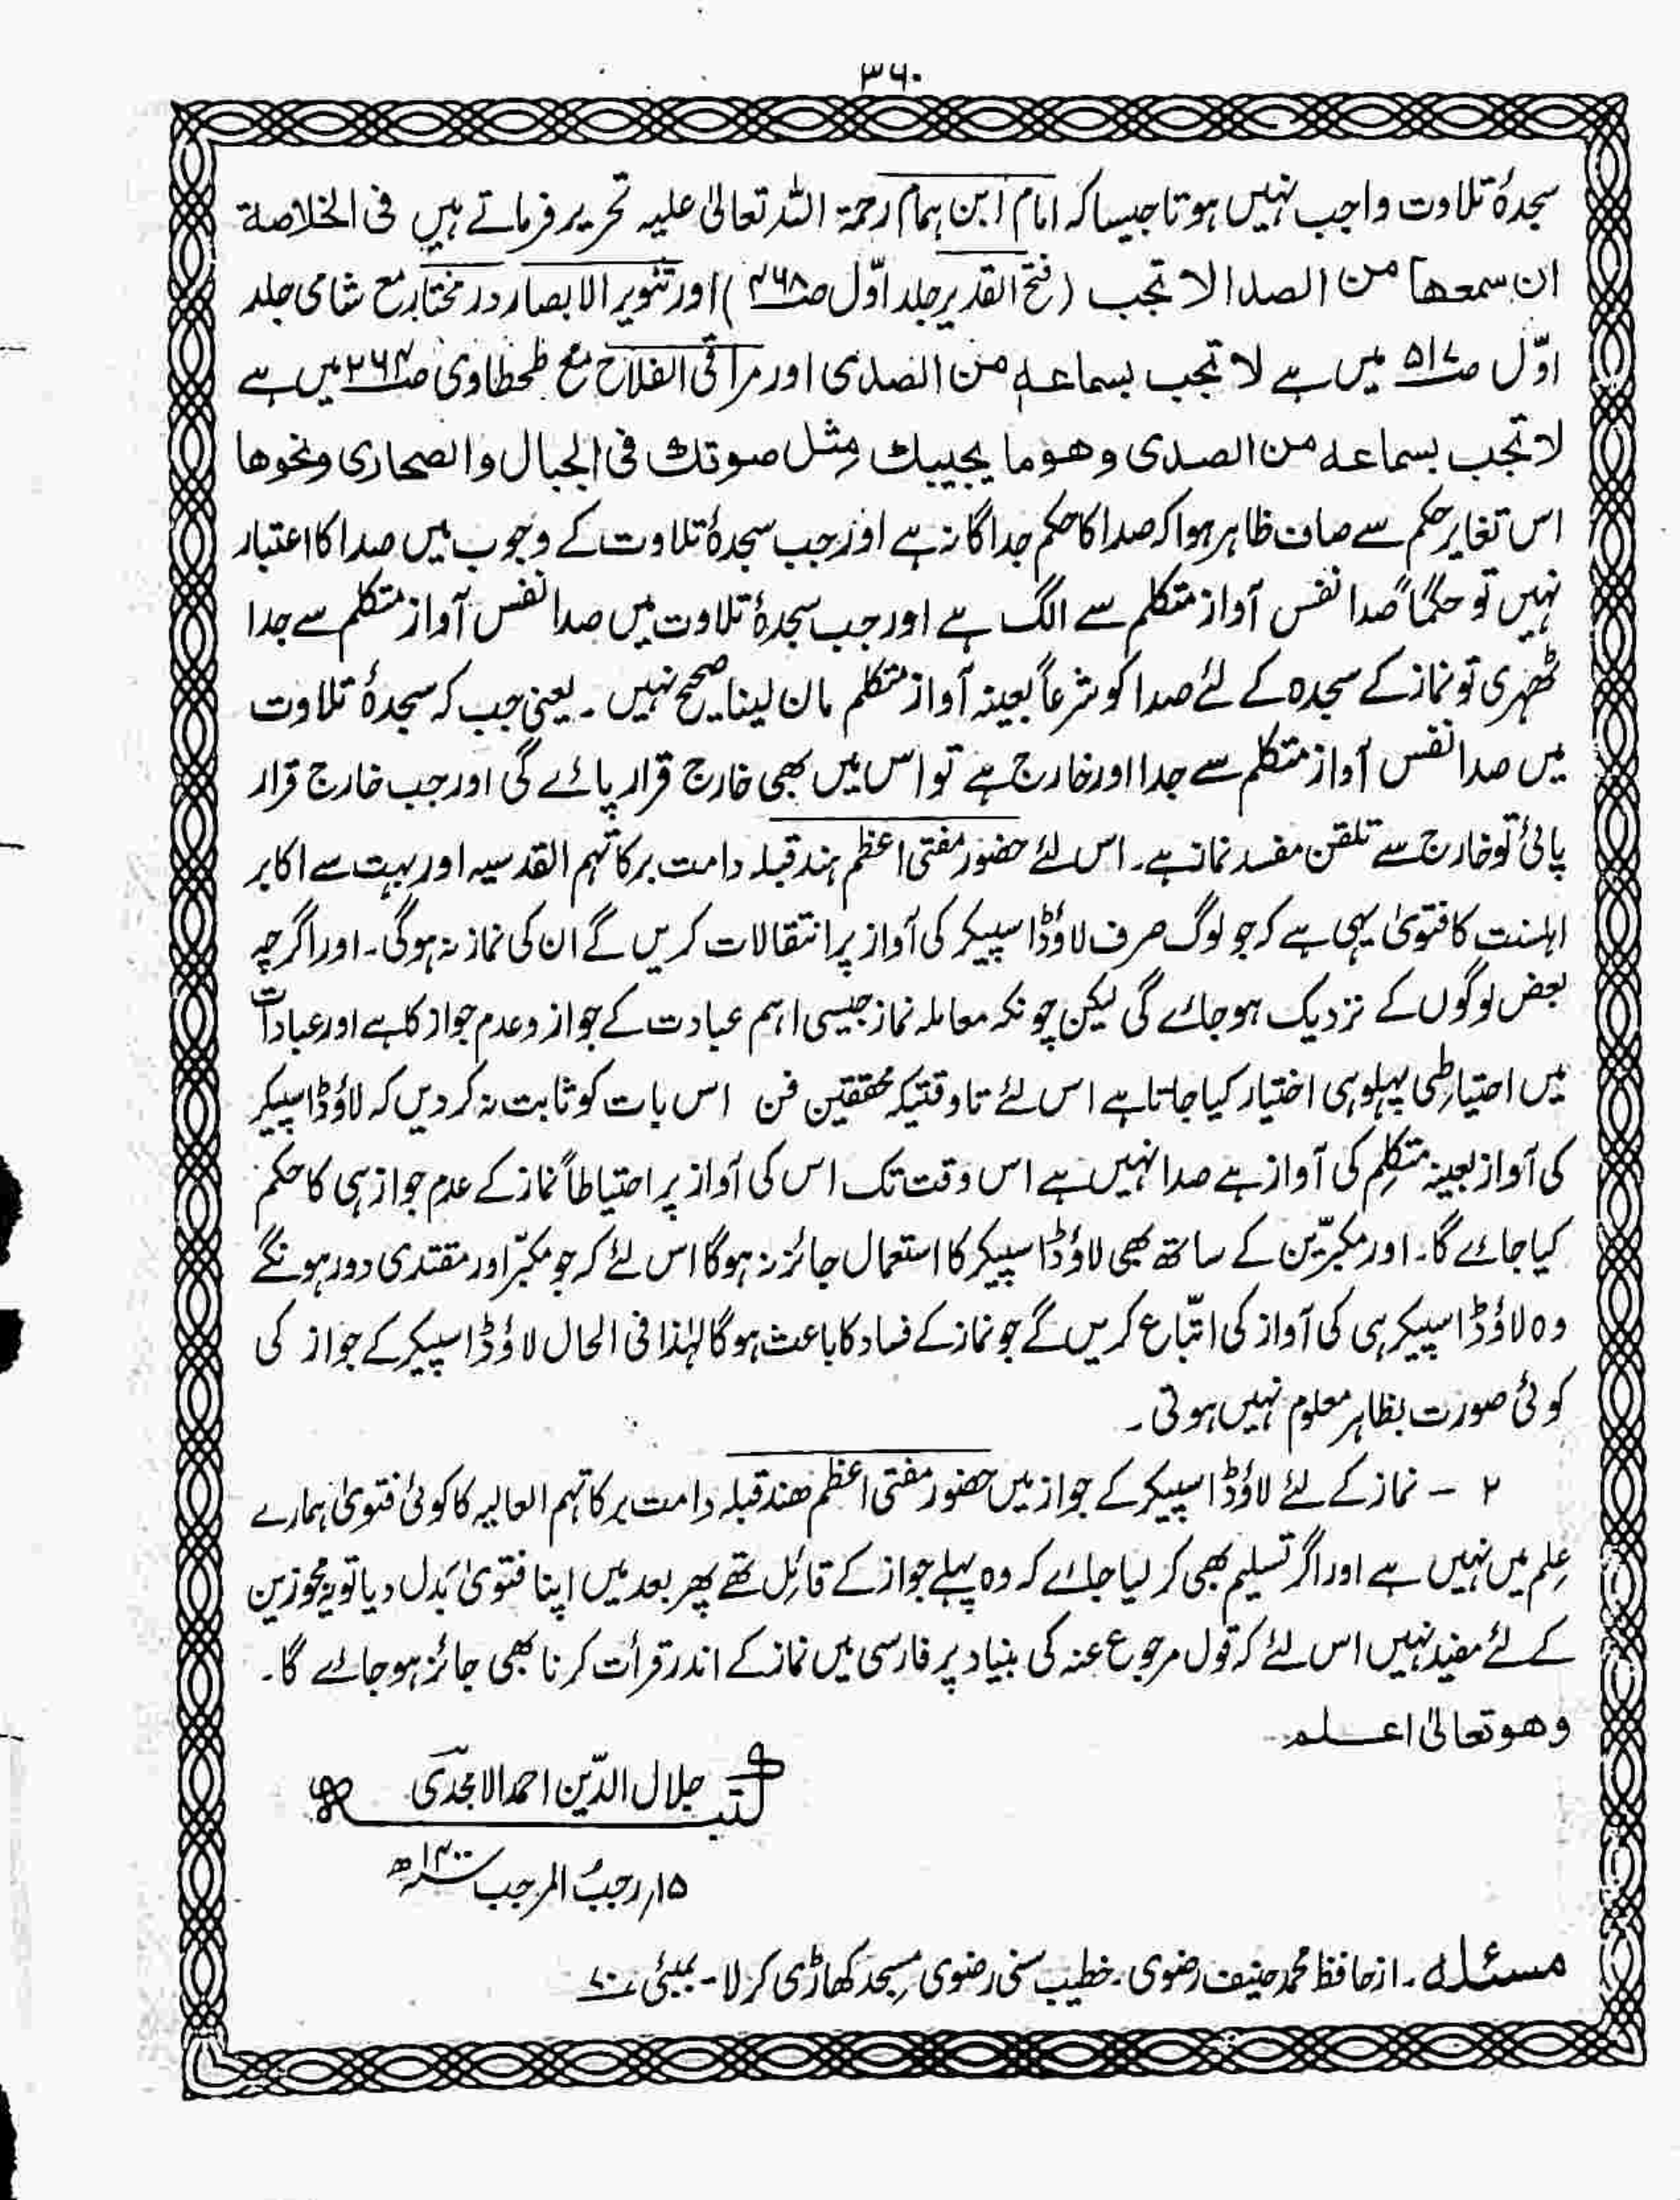 ۳۶۰
سجدۂ تلاوت واجب نہیں ہوتا جیسا کہ امام ابن ہمام رحمۃ اللہ تعالیٰ علیہ تحریر فرماتے ہیں فی الخلاصة
ان سمعها من الصدا لا تجب (فتح القدیر جلد اوّل ص۴۶۸) اور تنویر الابصار در مختار مع شامی جلد
اوّل ص۵۱۷ میں ہے لا تجب بسماعه من الصدی اور مراقی الفلاح مع طحطاوی ص۲۶۴ میں ہے
لا تجب بسماعه من الصدی وهو ما یجیبك مِثل صوتك فی الجبال والصحاری ونحوها
اس تغایر حکم سے صاف ظاہر ہوا کہ صدا کا حکم جداگانہ ہے اور جب سجدۂ تلاوت کے وجوب میں صدا کا اعتبار
نہیں تو حکماً صدا نفس آواز متکلم سے الگ ہے اور جب سجدۂ تلاوت میں صدا نفس آواز متکلم سے جدا
ٹھہری تو نماز کے سجدہ کے لئے صدا کو شرعاً بعینہ آواز متکلم مان لینا صحیح نہیں ۔ یعنی جب کہ سجدۂ تلاوت
میں صدا نفس آواز متکلم سے جدا اور خارج ہے تو اس میں بھی خارج قرار پائے گی اور جب خارج قرار
پائی تو خارج سے تلقن مفسد نماز ہے۔ اس لئے حضور مفتی اعظم ہند قبلہ دامت برکاتہم القدسیہ اور بہت سے اکابر
اہلسنت کا فتویٰ یہی ہے کہ جو لوگ صرف لاؤڈاسپیکر کی آواز پر انتقالات کریں گے ان کی نماز نہ ہوگی۔ اور اگرچہ
بعض لوگوں کے نزدیک ہو جائے گی لیکن چونکہ معاملہ نماز جیسی اہم عبادت کے جواز و عدم جواز کا ہے اور عبادات
میں احتیاطی پہلو ہی اختیار کیا جاتا ہے اس لئے تاوقتیکہ محققین فن اس بات کو ثابت نہ کر دیں کہ لاؤڈاسپیکر
کی آواز بعینہ متکلِم کی آواز ہے صدا نہیں ہے اس وقت تک اس کی آواز پر احتیاطاً نماز کے عدم جواز ہی کا حکم
کیا جائے گا۔ اور مکبّرین کے ساتھ بھی لاؤڈاسپیکر کا استعمال جائز نہ ہوگا اس لئے کہ جو مکبّر اور مقتدی دور ہونگے
وہ لاؤڈاسپیکر ہی کی آواز کی اتّباع کریں گے جو نماز کے فساد کا باعث ہوگا لہٰذا فی الحال لاؤڈاسپیکر کے جواز کی
کوئی صورت بظاہر معلوم نہیں ہوتی ۔
۲ – نماز کے لئے لاؤڈاسپیکر کے جواز میں حضور مفتی اعظم ھند قبلہ دامت برکاتہم العالیہ کا کوئی فتویٰ ہمارے
عِلم میں نہیں ہے اور اگر تسلیم بھی کر لیا جائے کہ وہ پہلے جواز کے قائل تھے پھر بعد میں اپنا فتویٰ بَدل دیا تو یہ مجوزین
کے لئے مفید نہیں اس لئے کہ قول مرجوع عنہ کی بنیاد پر فارسی میں نماز کے اندر قرأت کرنا بھی جائز ہو جائے گا ۔
وھو تعالیٰ اعلم
کتبہ جلال الدّین احمد الامجدی
۱۵ رجبُ المرجب ۱۴۰۰ھ
مسئلہ ۔ از حافظ محمد حنیف رضوی ۔ خطیب سنی رضوی مِسجد کھاڑی کرلا ۔ بمبئی ۷۰